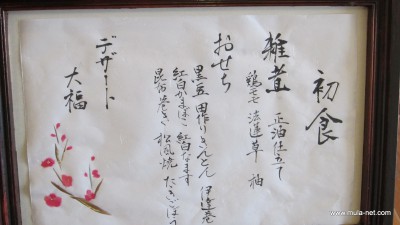 初食
雑煮 正油仕立て
鶏モモ 法連草 柚
おせち
黒豆 田作り きんとん 伊達巻
紅白かまぼこ 紅白なます
昆布巻き 松風焼 たたきごぼう
デザート
大福
www.mula-net.com